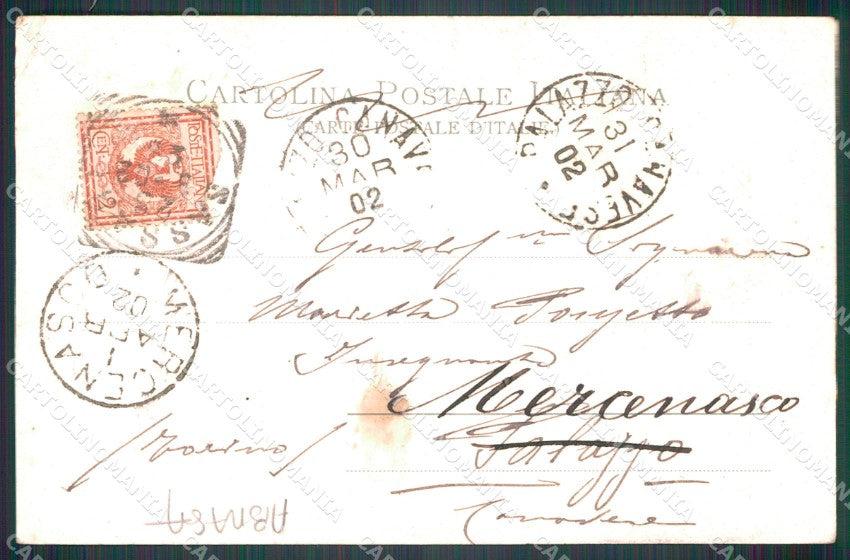 CARTOLINA POSTALE ITALIANA
(CARTE POSTALE D'ITALIE)
POSTE ITALIANE
CENT. 2
CANAVE
30
MAR
02
PALAZZO CANAVESE
31
MAR
02
MERCENASCO
1
APR
02
Marietta
Insegnante
Mercenasco
Palazzo
/Torino/
Canavese
CARTOLINOMANIA